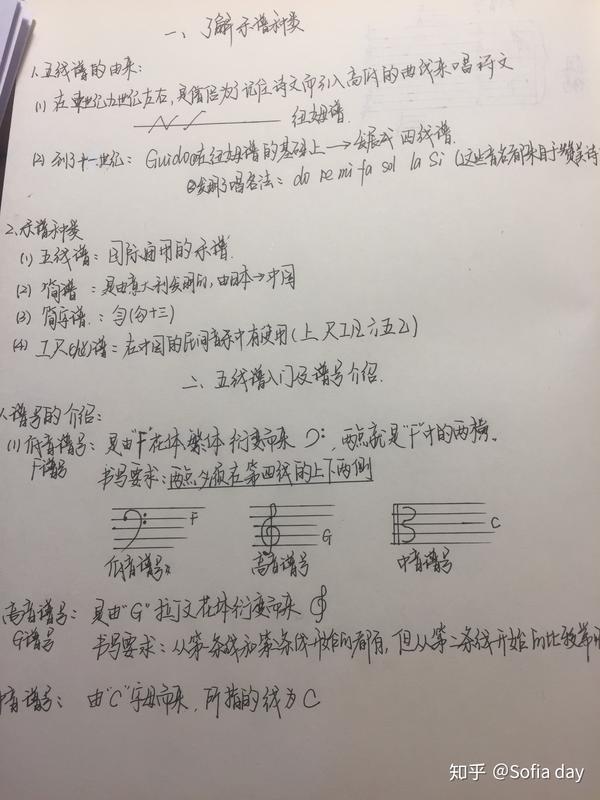 一、了解乐谱种类
1.五线谱的由来:
(1) 在 九世纪左右,是僧侣为了记住诗文而引入高低的曲线来唱诗文
纽姆谱
(2) 到了十一世纪: Guido在纽姆谱的基础上→发展成四线谱.
②发明了唱名法: do re mi fa sol la si (这些音名都来自于赞美诗
2.乐谱种类
(1) 五线谱: 国际通用的乐谱.
(2) 简谱: 是由意大利发明的, 由日本→中国
(3) 简字谱.:
(4) 工尺(chě)谱: 在中国的民间音乐中有使用(上 尺工凡六五乙)
二、五线谱入门及谱号介绍.
1.谱号的介绍:
(1) 低音谱号: 是由"F"花体繁体衍变而来 , 两点就是"F"中的两横.
F谱号
书写要求: 两点必须在第四线的上下两侧
F
G
C
低音谱号
高音谱号
中音谱号
高音谱号: 是由"G"拉丁文花体衍变而来
G谱号
书写要求: 从第一条线和第二条线开始的都有, 但从第二条线开始的比较常用
中音谱号: 由"C"字母而来, 所指的线为C
知乎 @Sofia day